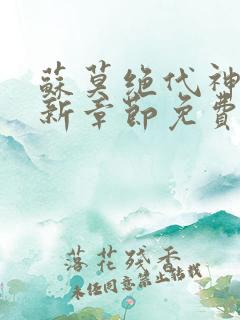 蘇莫絕代神
新章節免費
落花殘香
未經同意禁止轉載